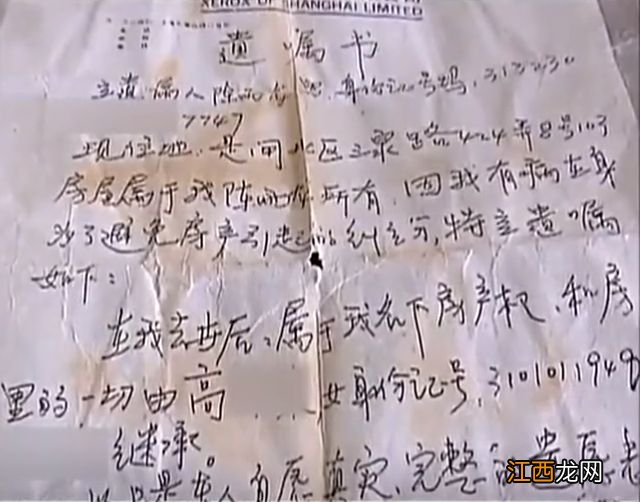 XEROX OF SHANGHAI LIMITED
遗嘱书
立遗嘱人陈 身份证号码,
7747
现住地:是闸北区 路424弄8号
房屋属于我陈 所有,因我有病在身
为了避免房产引起的纠纷,特立遗嘱
如下:
在我去世后、属于我名下房产权、和房
里的一切由高 女身份证号,3101011949
继承。
本人自愿真实完整的
江西龙网
www.jxcn.net